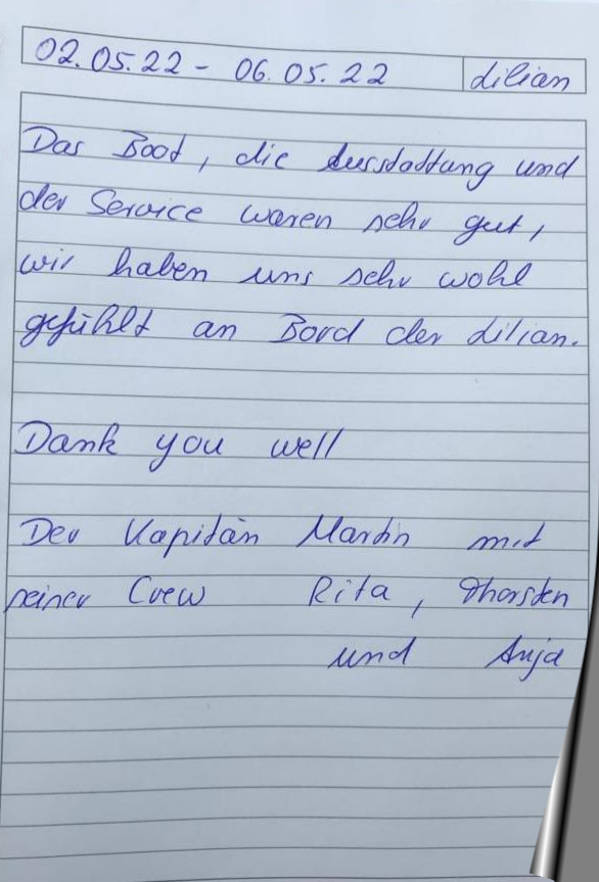 02.05.22 - 06.05.22 Lilian
Das Boot, die Ausstattung und
der Service waren sehr gut,
wir haben uns sehr wohl
gefühlt an Bord der Lilian.
Dank you well
Der Kapitän Martin mit
seiner Crew Rita, Thorsten
und Anja